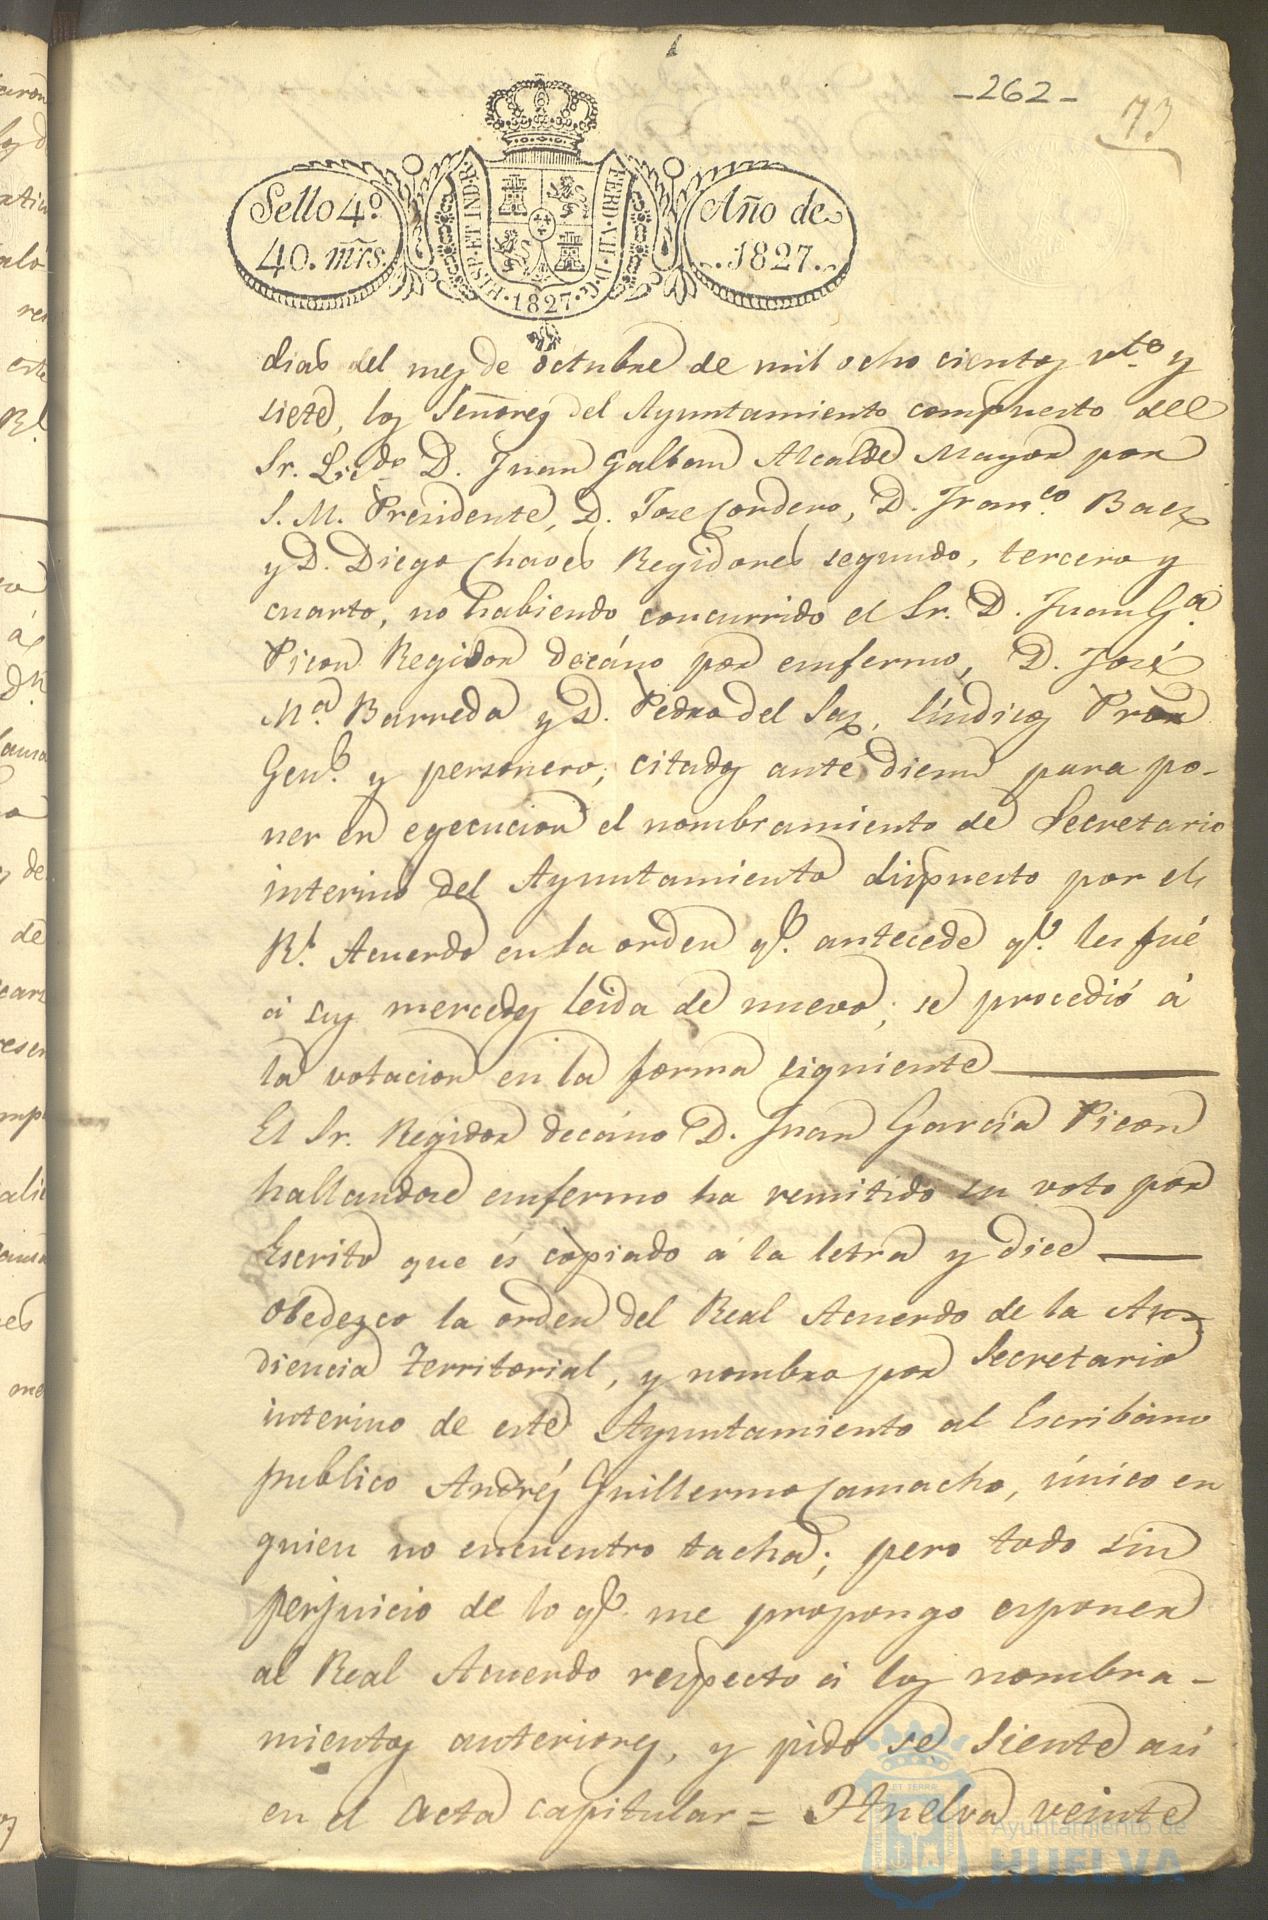 -262-
73
Sello 4º
40. mrs.
HISP. ET IND. R.
FERD. VII. D. G.
1827
Año de
1827.
dias del mes de octubre de mil ocho cientos vte. y
siete, los Señores del Ayuntamiento compuesto del
Sr. Licdo. D. Juan Galban Alcalde Mayor por
S. M. Presidente, D. Jose Cordero, D. Franco. Baez
y D. Diego Chaves Regidores segundo, tercero y
cuarto, no habiendo concurrido el Sr. D. Juan Ga.
Picon Regidor decáno por emfermo, D. José
Ma. Barreda y D. Pedro del Saz, Síndicos Pror.
Genl. y personero; citados anté diem para po-
ner en egecucion el nombramiento de Secretario
interino del Ayuntamiento dispuesto por el
Rl. Acuerdo en la orden qe. antecede qe. les fué
á sus mercedes leida de nuevo; se procedió á
la votacion en la forma siguiente
El Sr. Regidor decáno D. Juan García Picon
hallandose emfermo ha remitido su voto por
Escrito que és copiado á la letra y dice
Obedezco la orden del Real Acuerdo de la Au-
diencia Territorial, y nombro por Secretario
interino de este Ayuntamiento al Escribano
publico Andrés Guillermo Camacho, único en
quien no encuentro tacha; pero todo sin
perjuicio de lo qe. me propongo esponer
al Real Acuerdo respecto á los nombra-
mientos anteriores, y pido se siente asi
en el acta capitular = Huelva veinte
Ayuntamiento de
HUELVA